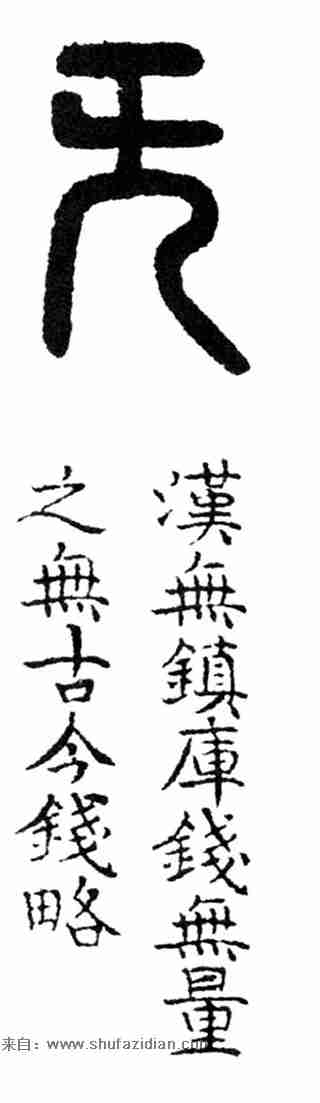 无
漢無鎮庫錢無量
之無古今錢略
来自：www.shufazidian.com